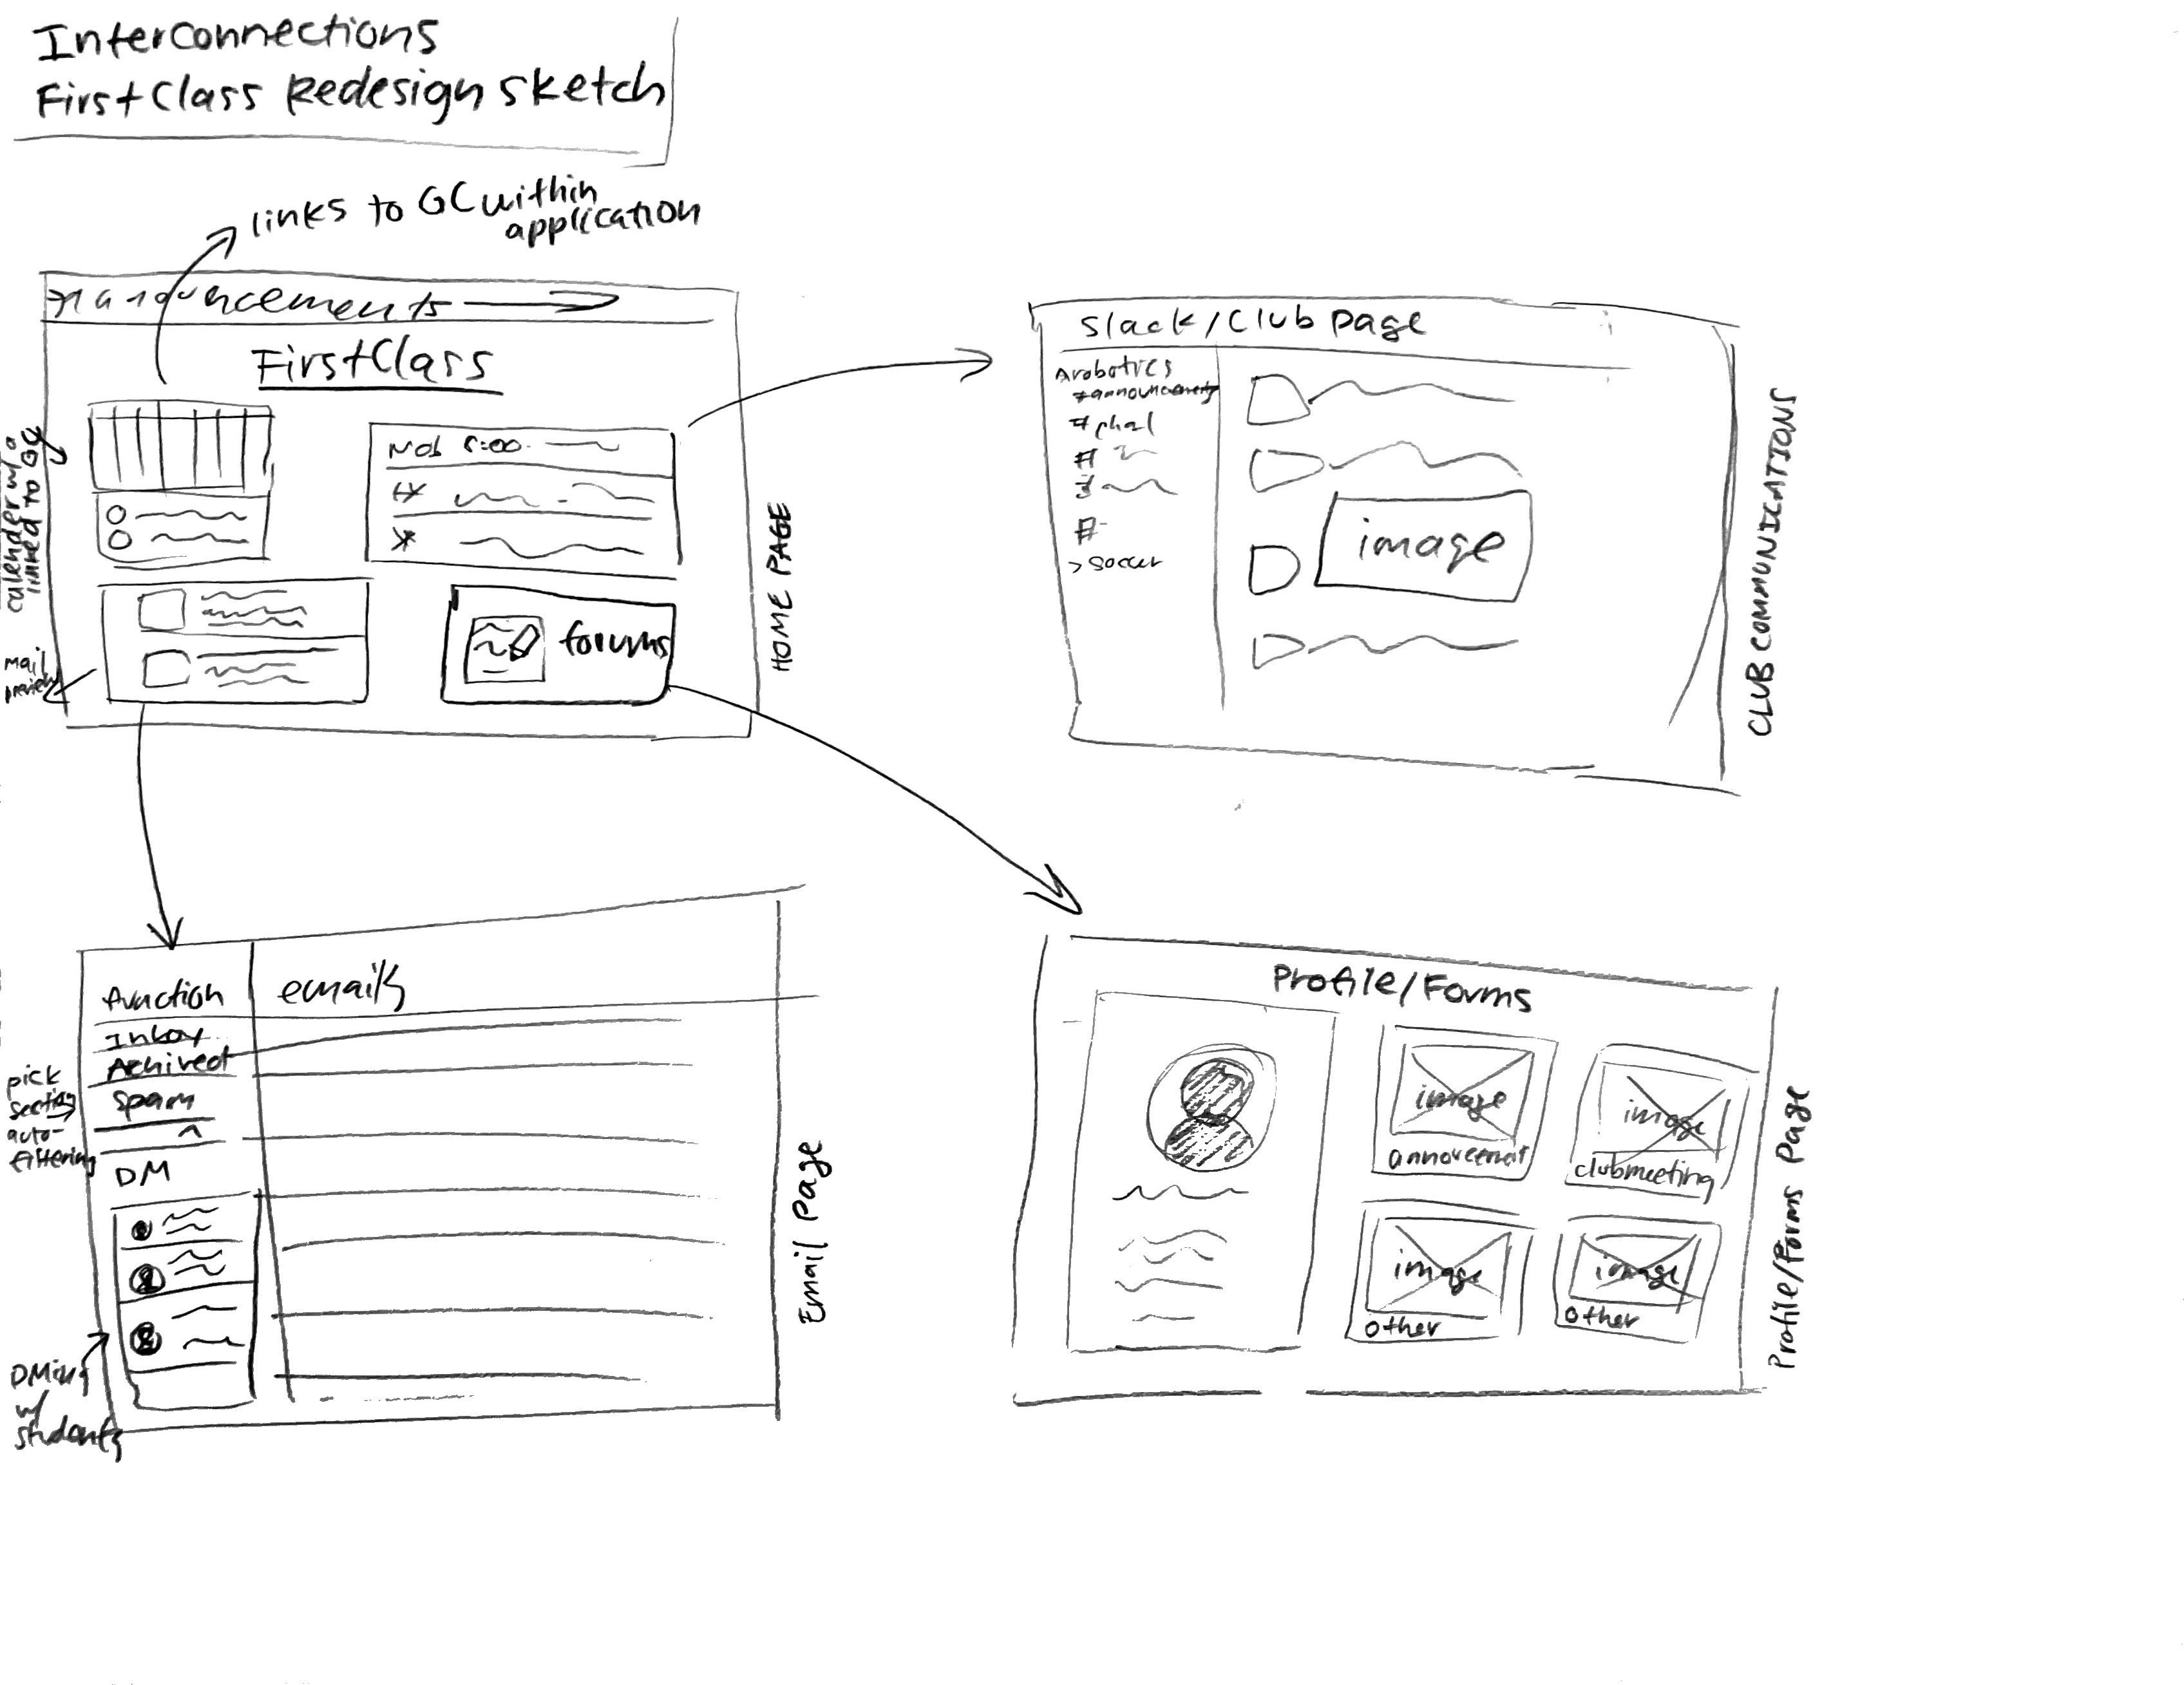 Interconnections
FirstClass Redesign Sketch
links to GC within
application
announcements
FirstClass
calender w/a
linked to GC
mail
preview
forums
HOME PAGE
Slack/Club page
robotics
#announcements
#
#
#
> soccer
image
CLUB COMMUNICATIONS
function
emails
Inbox
Achived
Spam
DM
pick
section
auto-
filtering
DMing
w/
students
Email Page
Profile/Forms
image
annoucement
image
clubmeeting
image
other
image
other
Profile/Forms Page